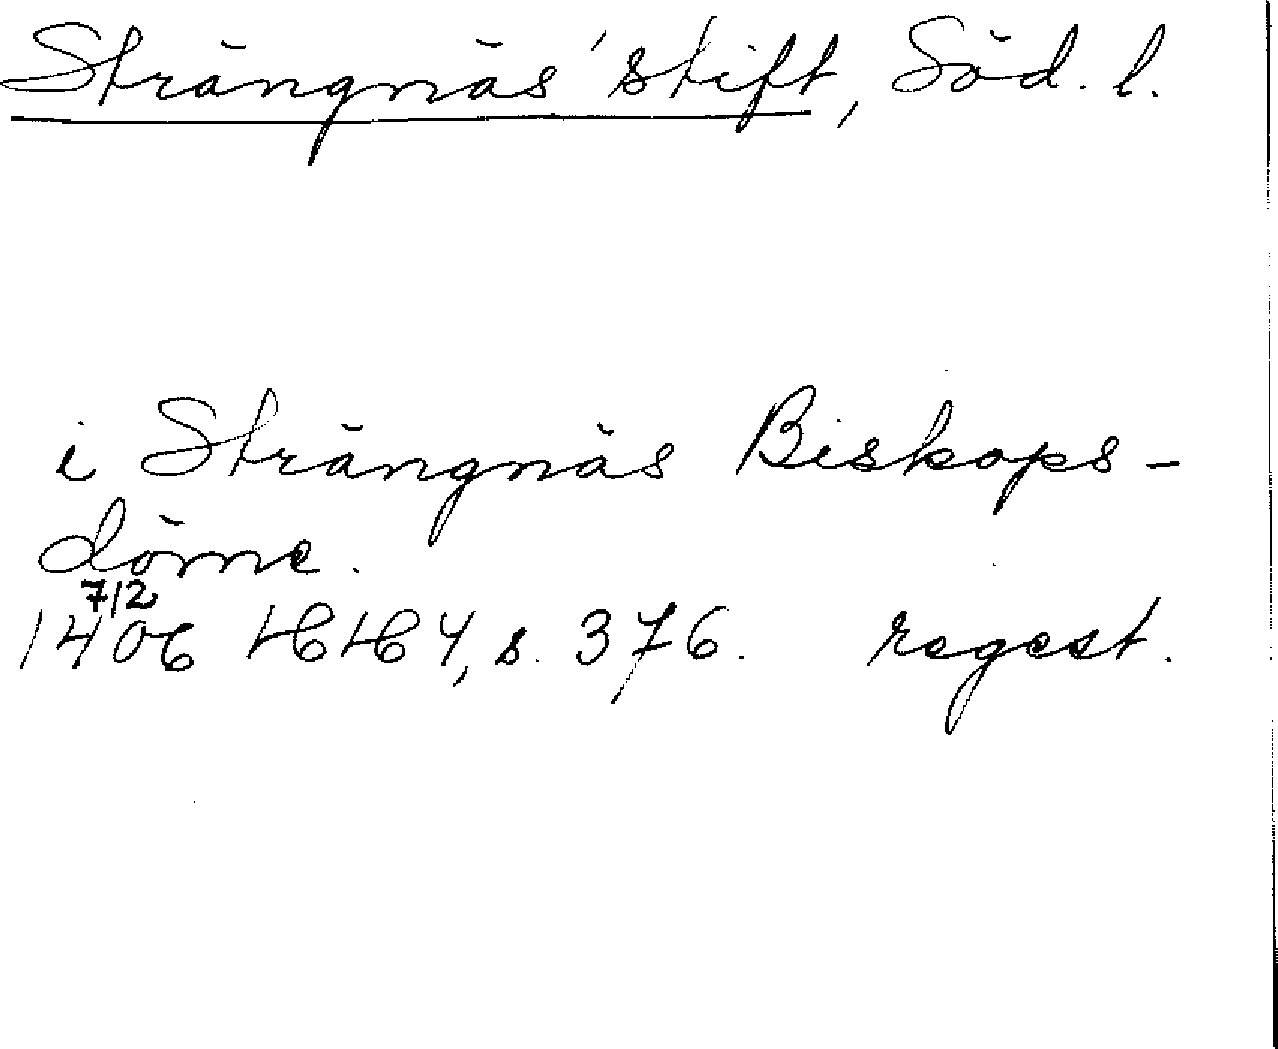 Strängnäs stift, Söd. l.
i Strängnäs Biskops-
döme.
7/2
1406 HHY, s. 376. regest.